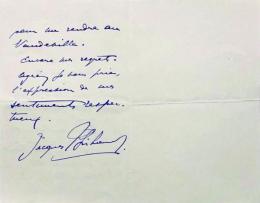 pour me rendre au
Vaudeville.
Encore mes regrets.
Agréez je vous prie,
l'expression de mes
sentiments respec-
tueux.
Jacques Thibaud